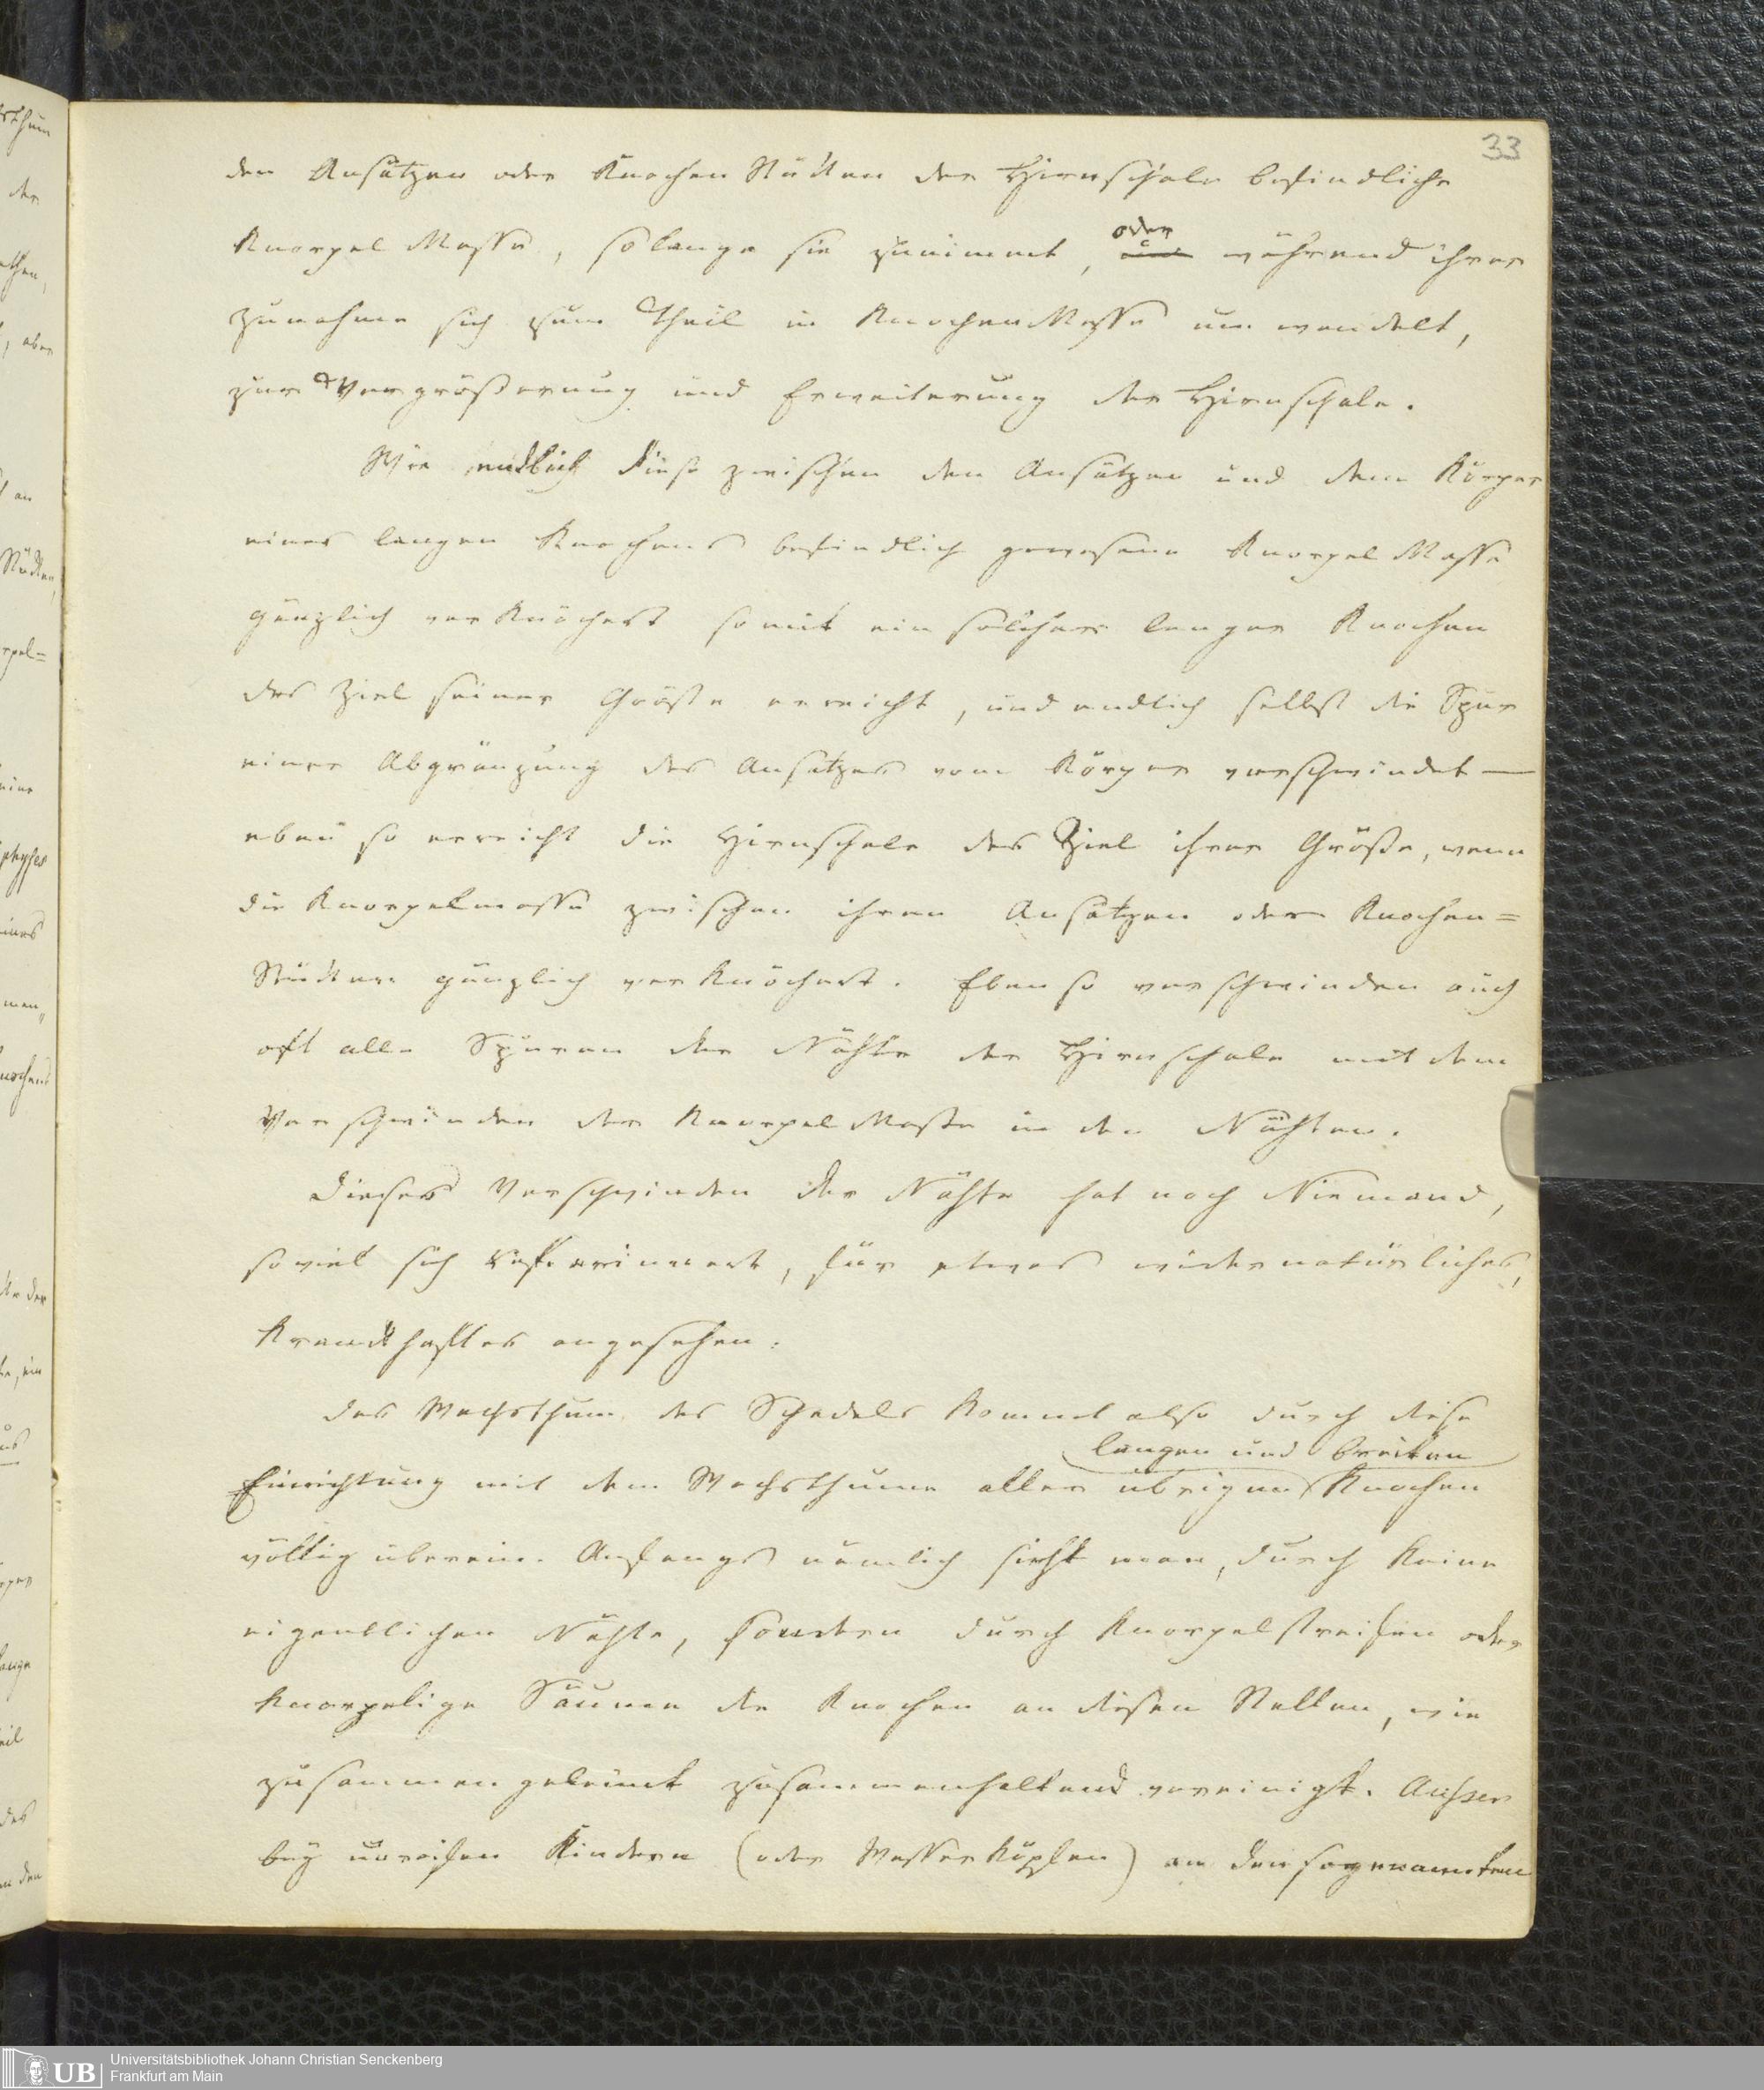 33
den Ansätzen oder Knochen Stücken der Hirnschale befindliche
Knorpel Masse, solange sie zunimmt, oder während ihrer
Zunahme sich zum Theil in KnochenMasse um wandelt,
zur Vergrößerung und Erweiterung der Hirnschale.
Wie endlich diese zwischen den Ansätzen und dem Körper
eines langen Knochens befindlich gewesene Knorpel Masse
gänzlich verknöchert somit ein solcher langer Knochen
das Ziel seiner Größe erreicht, und endlich selbst die Spur
einer Abgränzung des Ansatzes vom Körper verschwindet —
eben so erreicht die Hirnschale das Ziel ihrer Größe, wenn
die Knorpelmasse zwischen ihren Ansätzen oder Knochen=
Stücken gänzlich verknöchert. Eben so verschwinden auch
oft alle Spuren der Nähte der Hirnschale mit dem
Verschwinden der Knorpel Masse in den Nähten.
Dieses Verschwinden der Nähte hat noch Niemand,
soviel ich mich erinnert, für etwas widernatürliches,
Krankhaftes angesehen.
Das Wachsthum des Schedels kommt also durch diese
langen und breiten
Einrichtung mit dem Wachsthume aller übrigen Knochen
völlig überein. Anfangs nämlich sieht man, durch keine
eigentlichen Nähte, sondern durch Knorpelstreifen oder
knorpelige Säume die Knochen an diesen Stellen, wie
zusammen geleimt zusammenhaltend vereinigt. Ausser
bey unreifen Kindern (oder Wasserköpfen) an den sogenannten
Universitätsbibliothek Johann Christian Senckenberg
Frankfurt am Main
UB